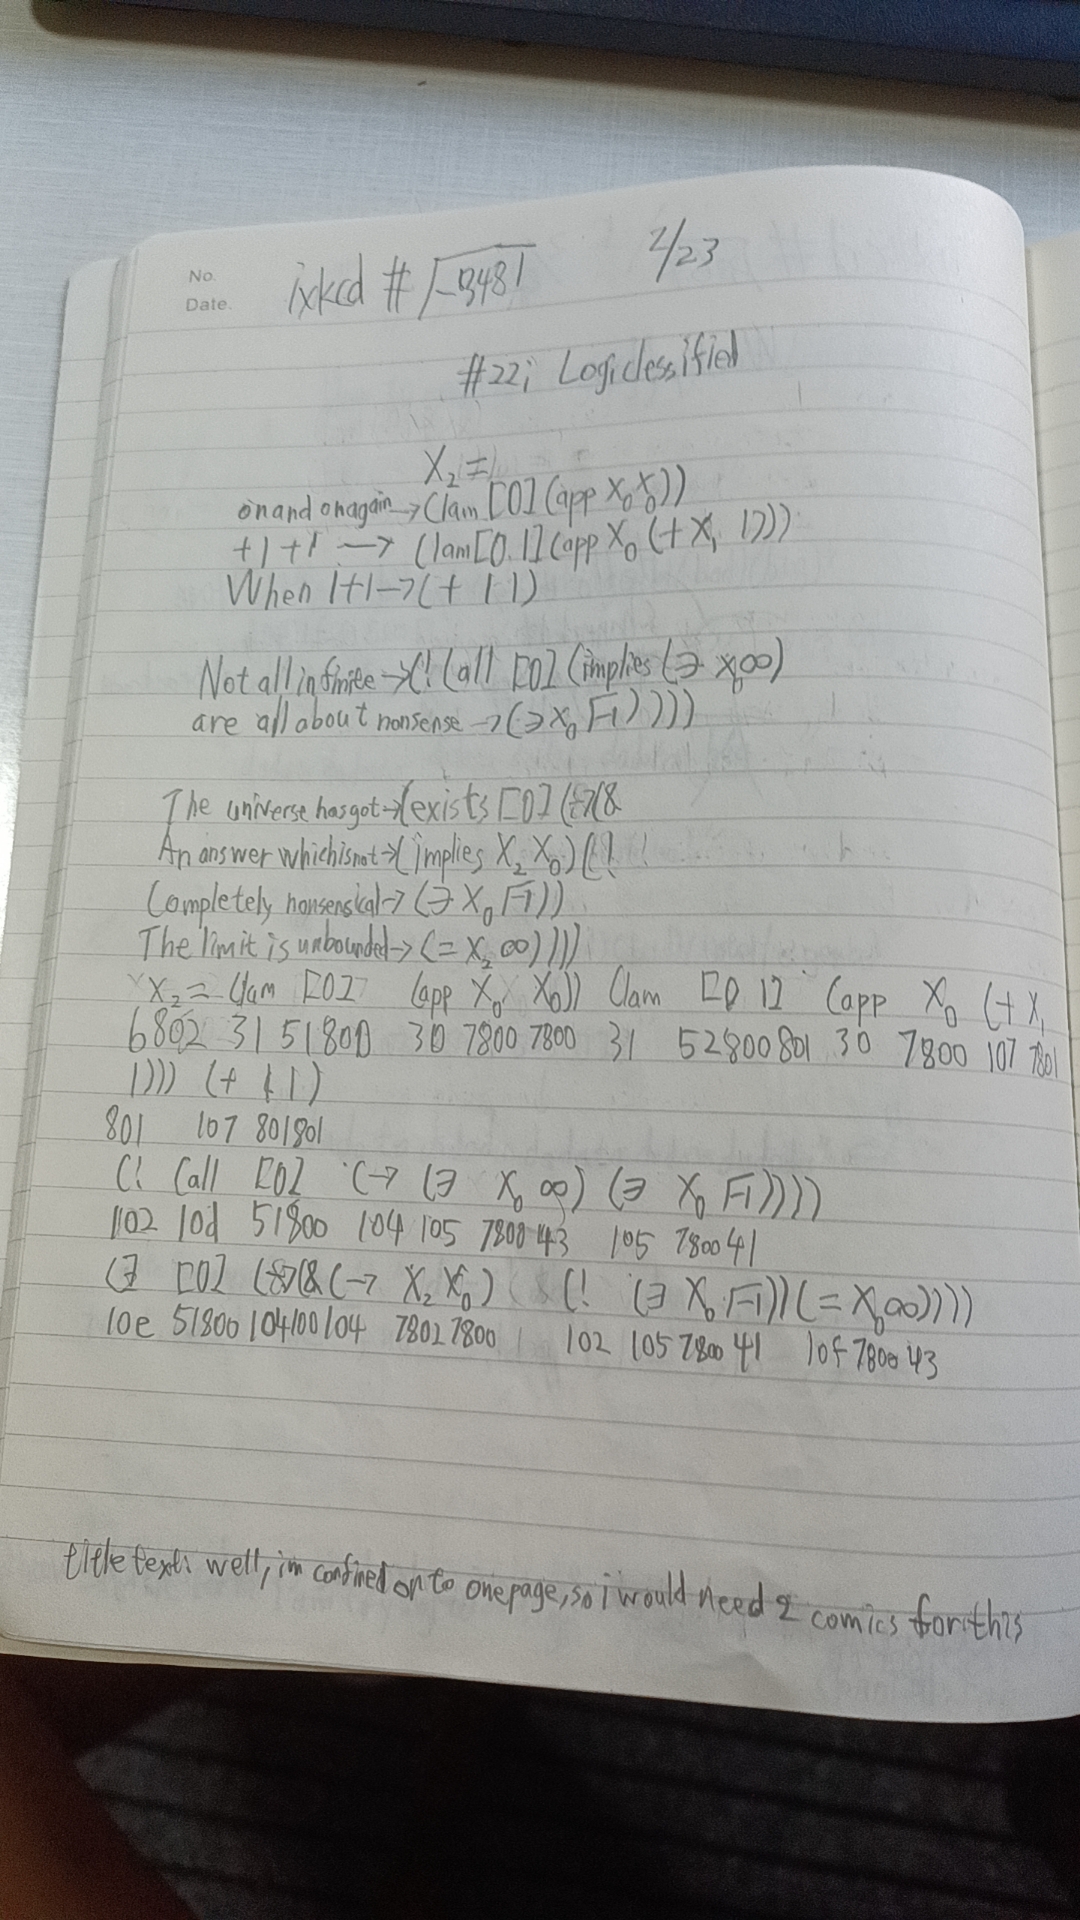 No.
Date.
ixkcd # √-3481
2/23
#22; Logiclessified
X₂ =
on and on again → (lam [0] (app X₀ X₀))
+1 +1 → (lam [0.1] (app X₀ (+ X₁ 1)))
When 1+1 → (+ 1 1)
Not all infinite → (! (all [0] (implies (∋ X₀ ∞)
are all about nonsense → (∋ X₀ √-1))))
The universe has got → (exists [0] (→ (&
An answer which is not → (implies X₂ X₀) (!
Completely nonsensical → (∋ X₀ √-1))
The limit is unbounded → (= X₂ ∞))))
X₂ = (lam [0] (app X₀ X₀)) (lam [0 1] (app X₀ (+ X₁
6802 31 51800 30 7800 7800 31 52800801 30 7800 107 7801
1))) (+ 1 1)
801 107 801801
(! (all [0] (→ (∋ X₀ ∞) (∋ X₀ √-1))))
1102 10d 51800 104 105 7800 43 105 7800 41
(∃ [0] (→ (& (→ X₂ X₀) (! (∋ X₀ √-1)) (= X₀ ∞))))
10e 51800 104100104 7802 7800 102 105 7800 41 10f 7800 43
title text: well, im confined onto one page, so i would need 2 comics for this